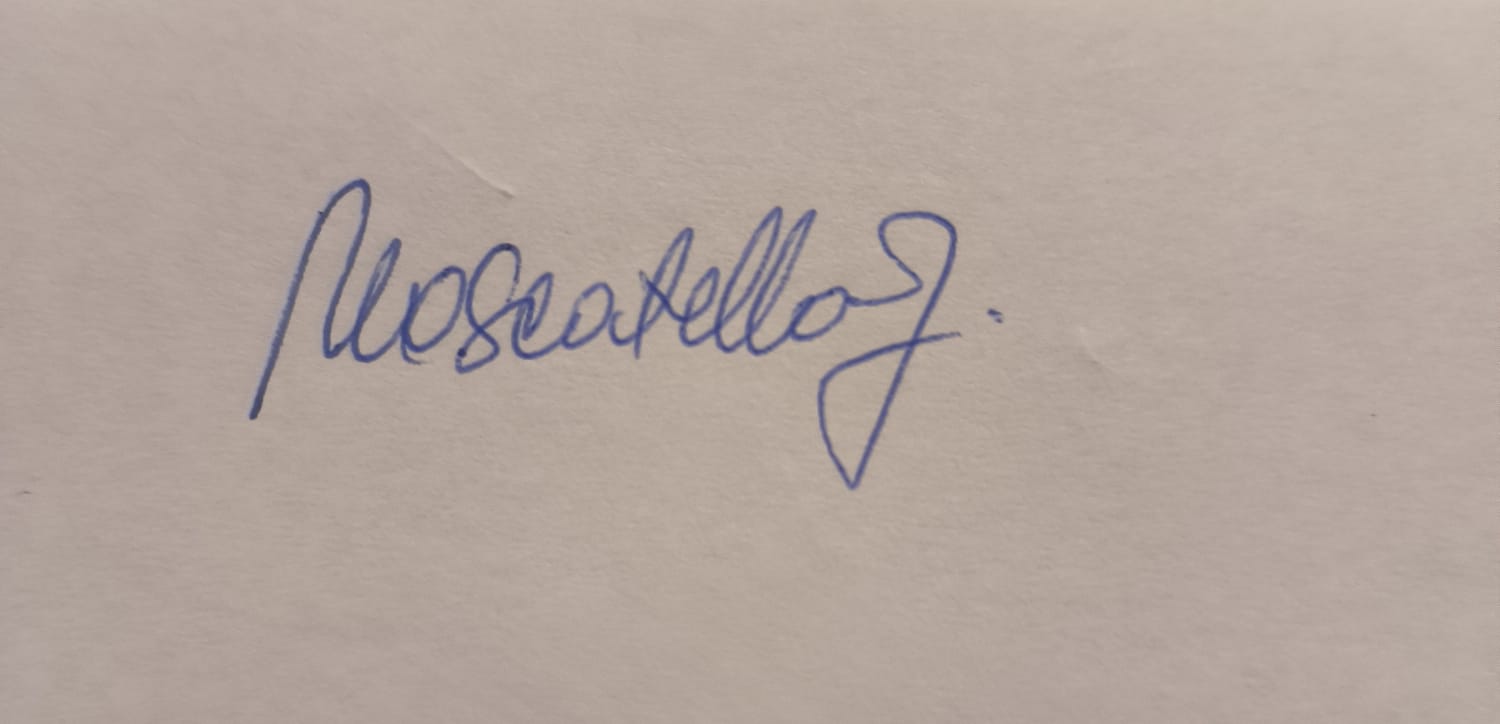 Moscatello J.